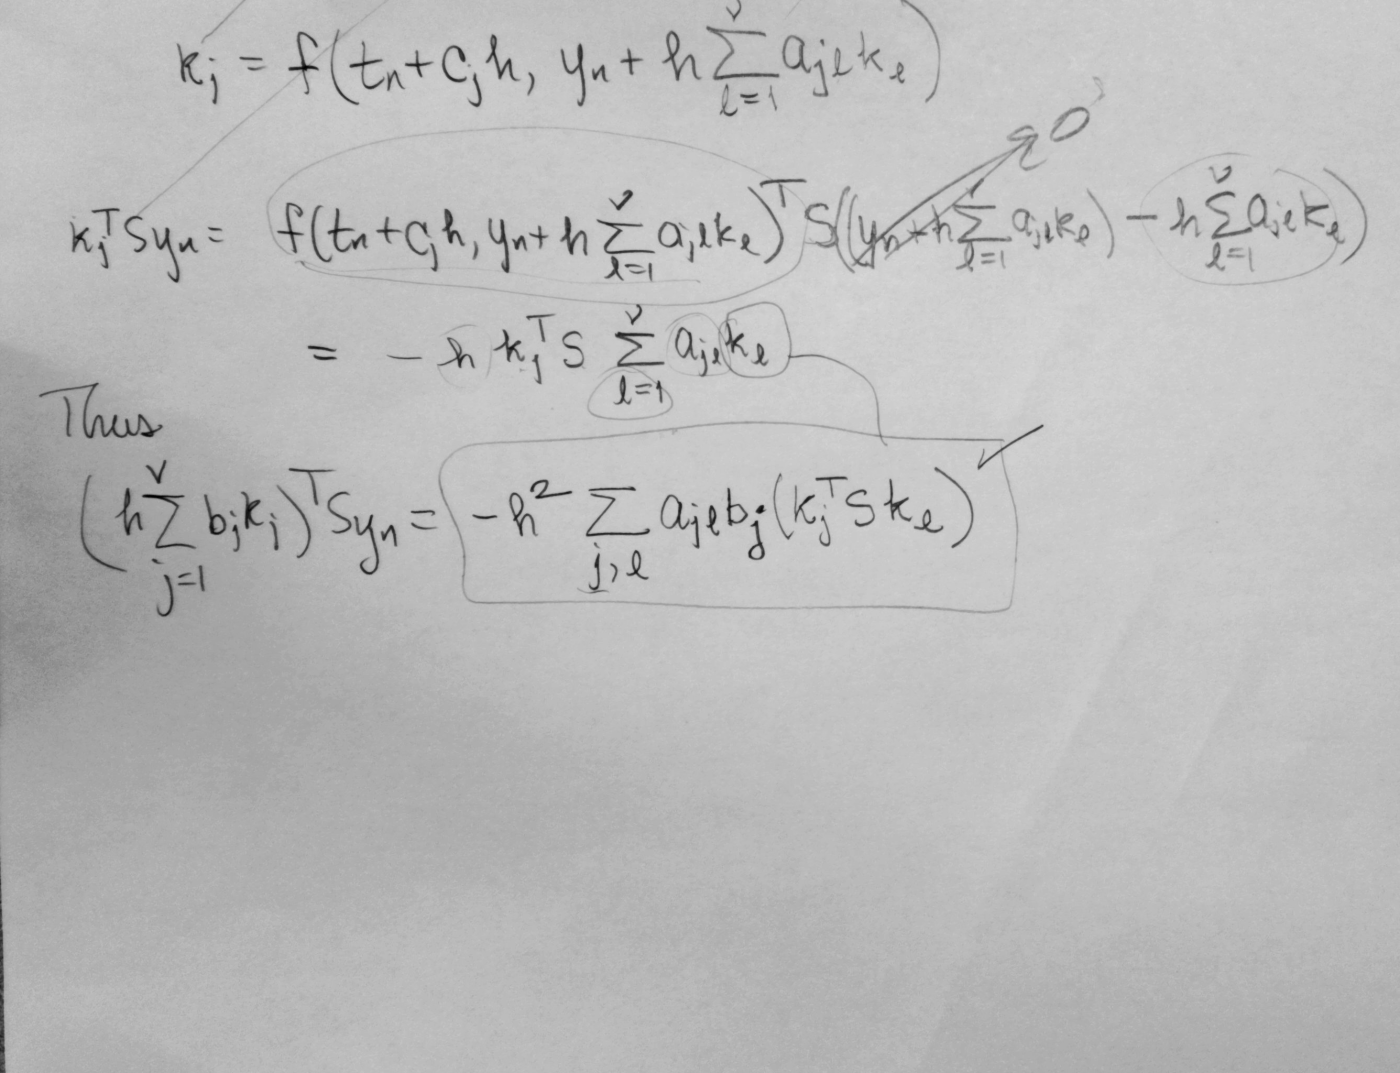 k_j = f(t_n + c_j h, y_n + h Σ_{l=1}^{ν} a_{jl} k_l)
k_j^T S y_n = f(t_n + c_j h, y_n + h Σ_{l=1}^{ν} a_{jl} k_l)^T S((y_n + h Σ_{l=1}^{ν} a_{jl} k_l) - h Σ_{l=1}^{ν} a_{jl} k_l) → 0
= - h k_j^T S Σ_{l=1}^{ν} a_{jl} k_l
Thus
(h Σ_{j=1}^{ν} b_j k_j)^T S y_n = - h^2 Σ_{j,l} a_{jl} b_j (k_j^T S k_l) ✓